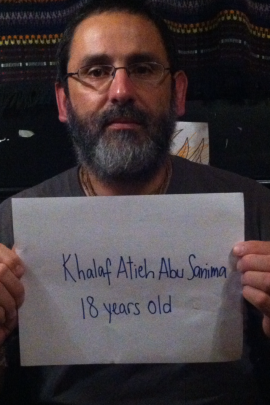 Khalaf Atieh Abu Sanima
18 years old